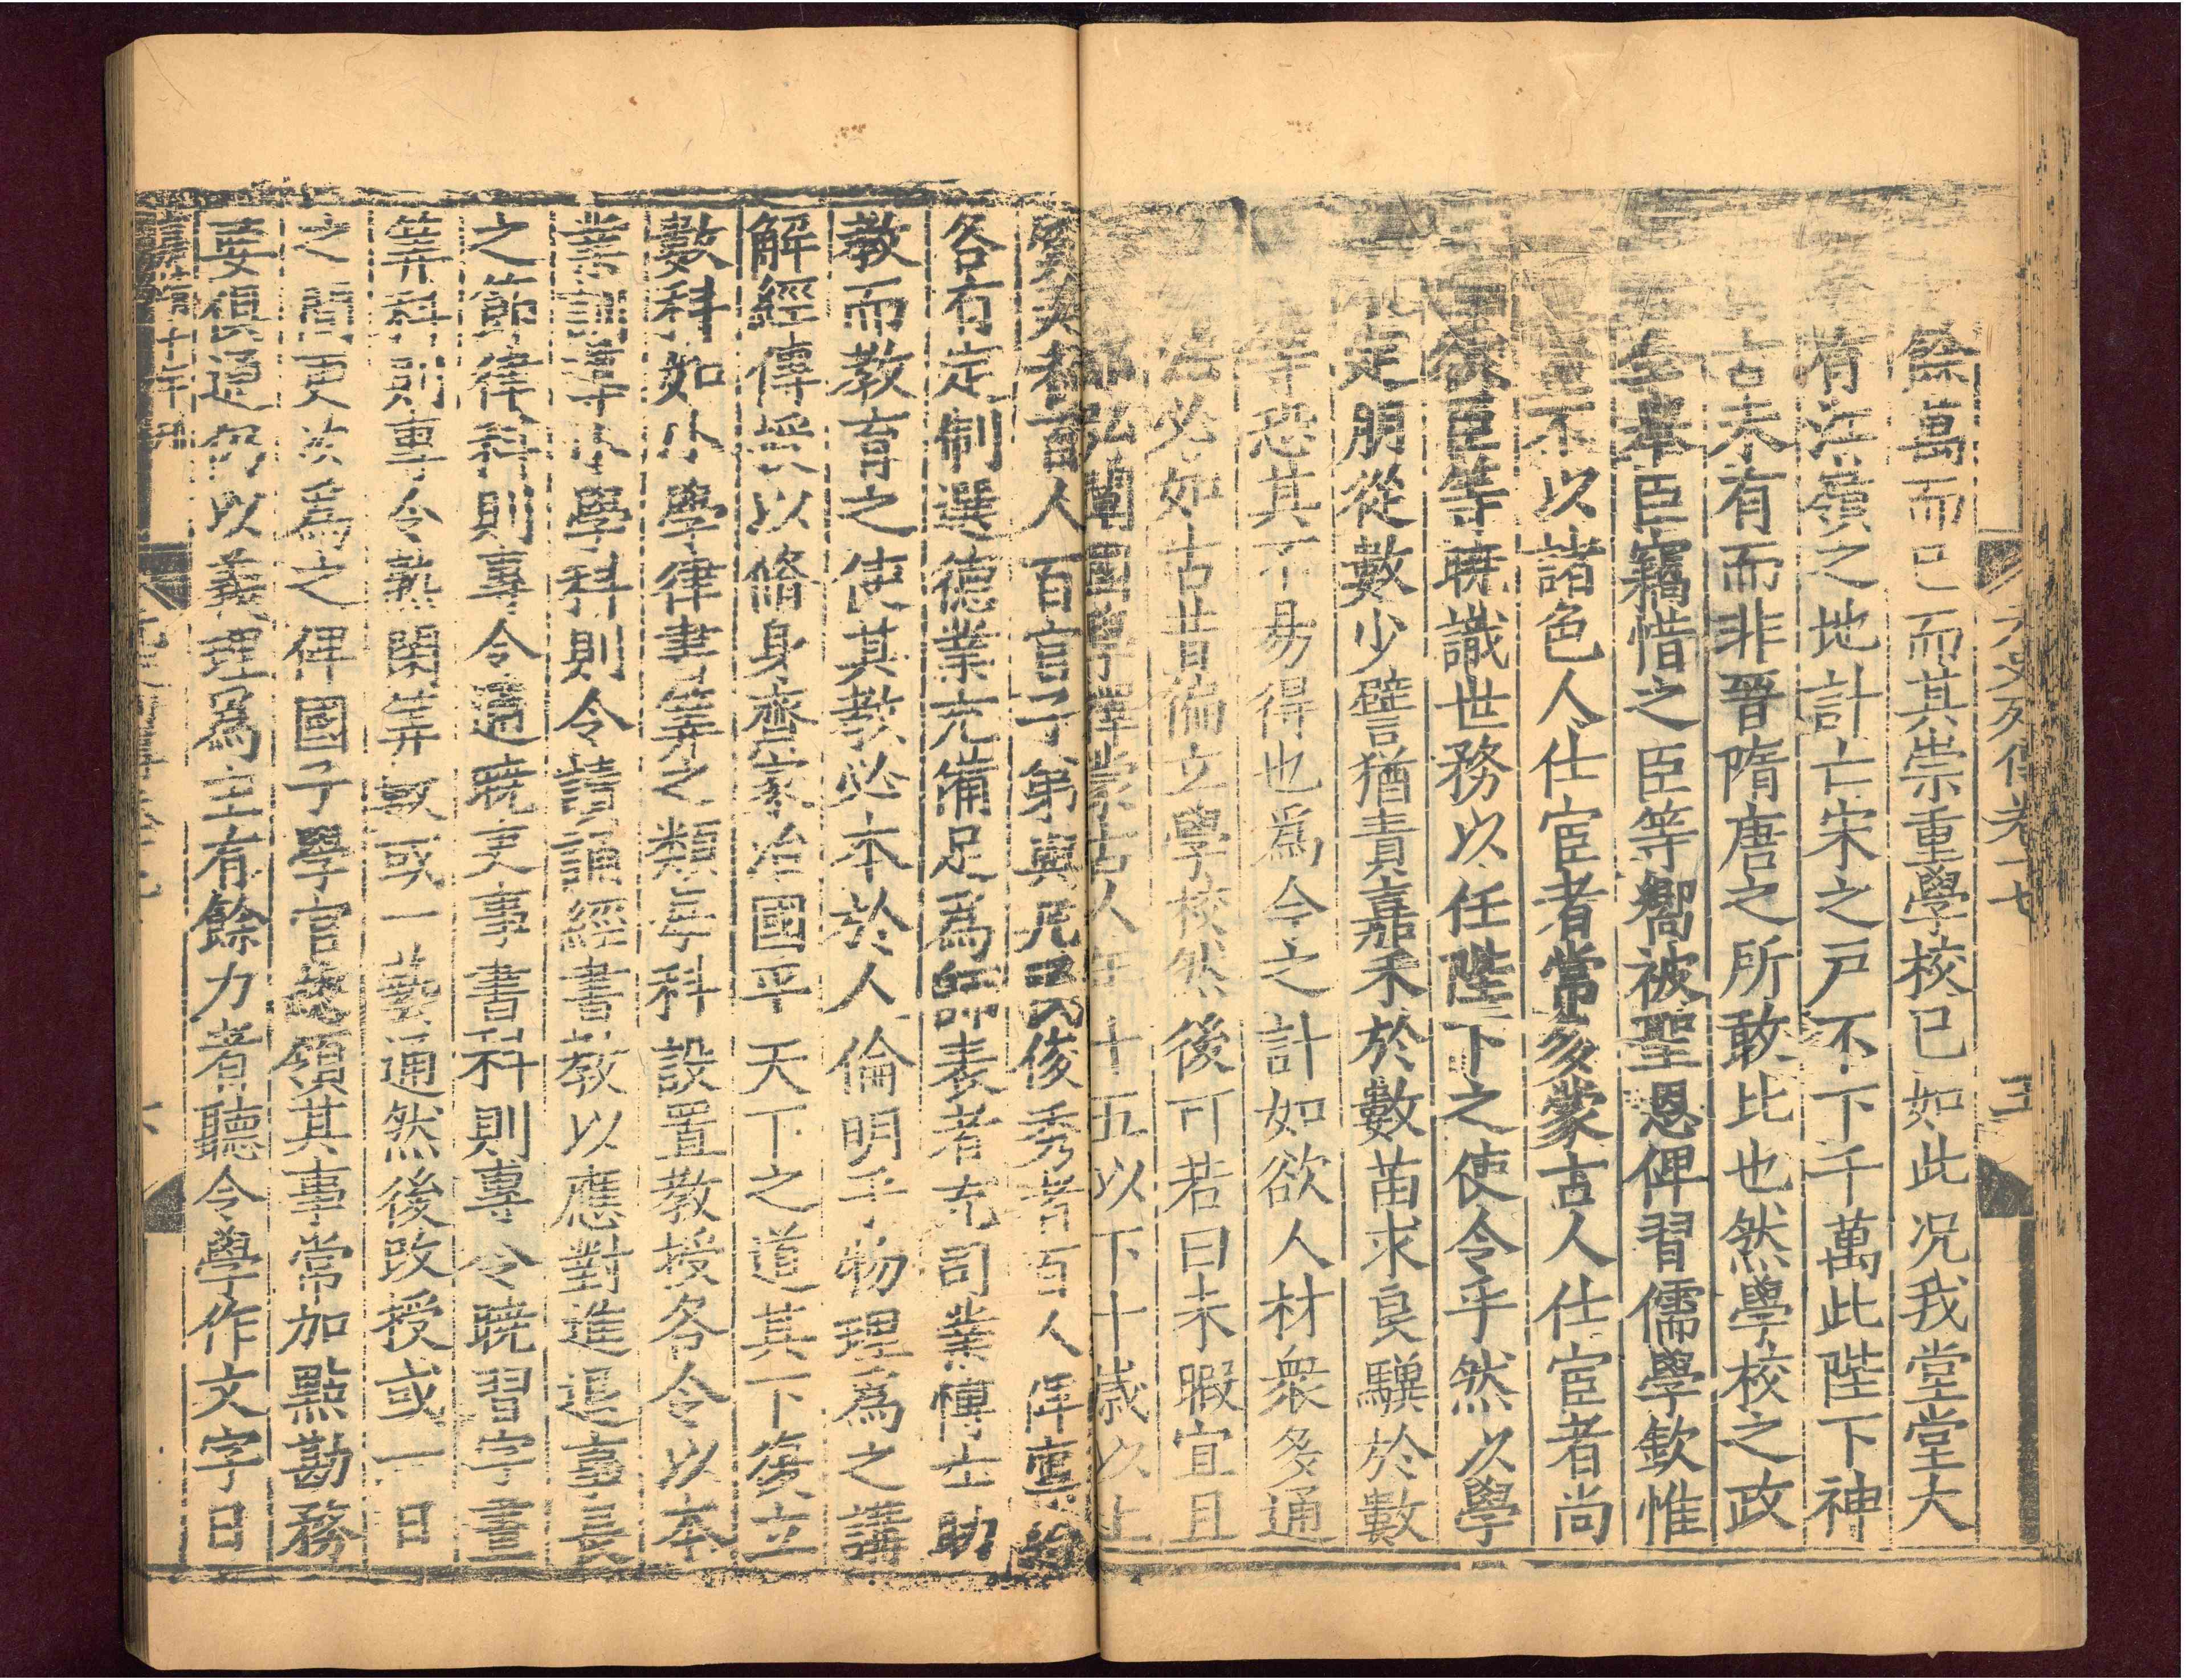 元史列傳卷十七 五
餘萬而已而其崇重學校已如此况我堂堂大
有江嶺之地計亡宋之戸不下千萬此陛下神
古未有而非晉隋唐之所敢比也然學校之政
全舉臣竊惜之臣等嚮被聖恩俾習儒學欽惟
豈不以諸色人仕宦者常多蒙古人仕宦者尚
欲臣等曉識世務以任陛下之使令乎然以學
定朋從數少譬猶責嘉禾於數苗求良驥於數
等恐其不易得也爲今之計如欲人材衆多通
法必如古昔徧立學校然後可若曰未暇宜且
弘闡國學擇蒙古人年十五以下十歲以上
質美者百人百官子弟與凡民俊秀者百人俾廪給
各有定制選德業充備足爲師表者充司業博士助
教而教育之使其教必本於人倫明乎物理爲之講
解經傳授以脩身齊家治國平天下之道其下復立
數科如小學律書筭之類每科設置教授各令以本
業訓導小學科則令讀誦經書教以應對進退事長
之節律科則專令通曉吏事書科則專令曉習字畫
筭科則專令熟閑筭數或一藝通然後改授或一日
之間更次爲之俾國子學官總領其事常加點勘務
要俱通仍以義理爲主有餘力者聽令學作文字日
嘉靖十年刊